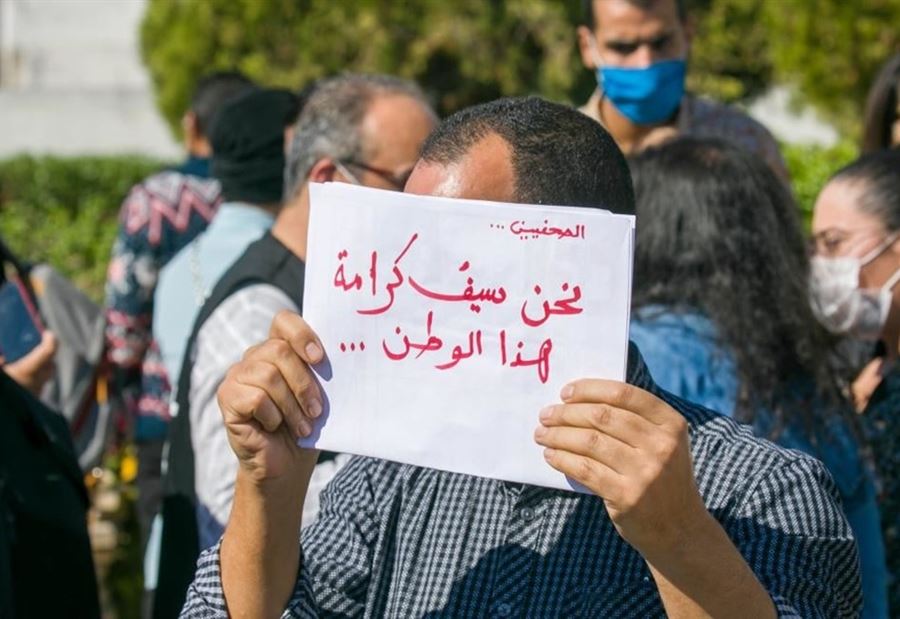 الصحفيين ...
نحن سيف كرامة
هذا الوطن ...